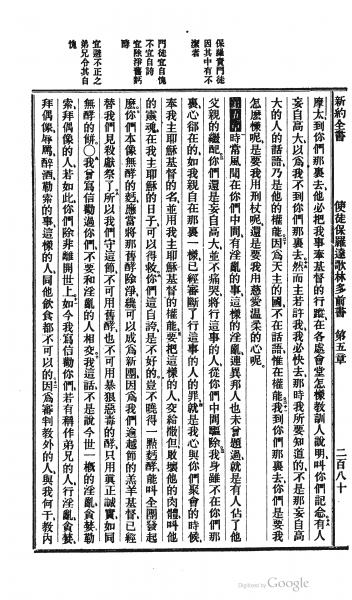 新約全書 使徒保羅達歌林多前書 第五章 二百八十
摩太到你們那裏去他必把我事奉基督的行蹤在各處會堂怎樣教訓人說明叫你們記念有人
妄自高大以爲我不到你們那裏去然而主若許我我必快去那時我所要知道的不是那妄自高
大的人的話語乃是他的權能因爲天主的國不在話語惟在權能我到你們那裏去你們是要我
怎麽樣呢是要我用刑杖呢還是要我用慈愛溫柔的心呢
時常風聞在你們中間有淫亂的事這樣的淫亂連異邦人也未曾題過就是有人佔了他
父親的繼配你們還是妄自高大並不痛哭將行這事的人從你們中間驅除我身雖不在你們那
裏心卻在的如我親自在那裏一樣已經審斷了行這事的人的罪就是我心與你們聚會的時候
奉我主耶穌基督的名並用我主耶穌基督的權能要把這樣的人交給撒但敗壞他的肉體叫他
的靈魂在我主耶穌的日子可以得救你們這自誇是不好的豈不曉得一點麪酵能叫全團發起
麽你們本像無酵的麪應當將那舊酵除淨纔可以成爲新團因爲我們逾越節的羔羊基督已經
替我們見殺獻祭了所以我們守這節不可用舊酵也不可用暴狠惡毒的酵只用眞正誠實如同
無酵的餅〇我曾寫信勸過你們不要和淫亂的人相交我這話不是說今世一槪的淫亂貪婪勒
索拜偶像的人若如此你們除非離開世上如今我寫信勸你們若有稱作弟兄的人行淫亂貪婪
拜偶像辱罵醉酒勒索的事這樣的人同他飲食都不可以的因爲審判教外的人與我何干教內
保羅責門徒
因其中有不
潔者
門徒宜自愧
不宜自誇
宜除淨舊麪
酵
宜避不正之
弟兄令其自
愧
Digitized by Google